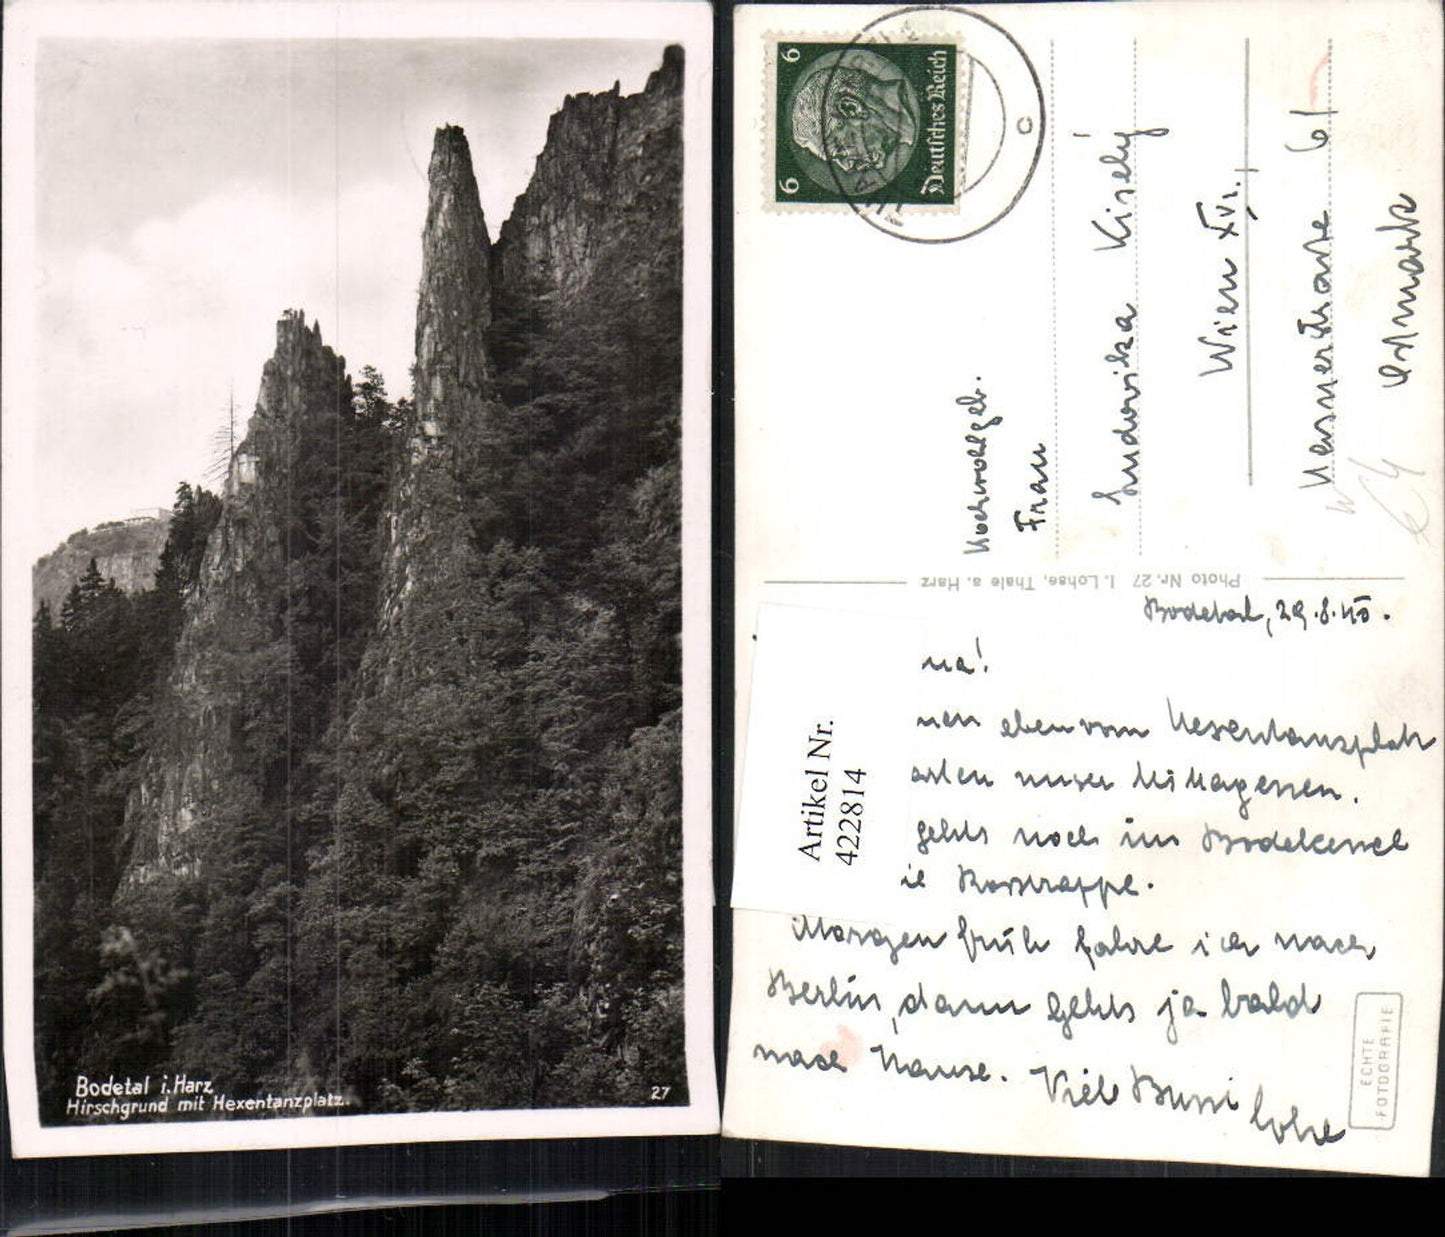 Bodetal i. Harz
Hirschgrund mit Hexentanzplatz.
27
6
6
Deutsches Reich
c
Hochwohlgeb.
Frau
Ludovika Kisely
Wien XVI.,
61
Ostmark
Photo Nr. 27 I. Lohse, Thale a. Harz
Bodetal, 29.8.40.
Artikel Nr.
422814
eben vom Hexentanzplatz
unser Mittagessen.
gehts noch ins Bodekessel
Rosstrappe.
Morgen früh fahre ich nach
Berlin, dann gehts ja bald
nach Hause. Viele Bussi
ECHTE
FOTOGRAFIE